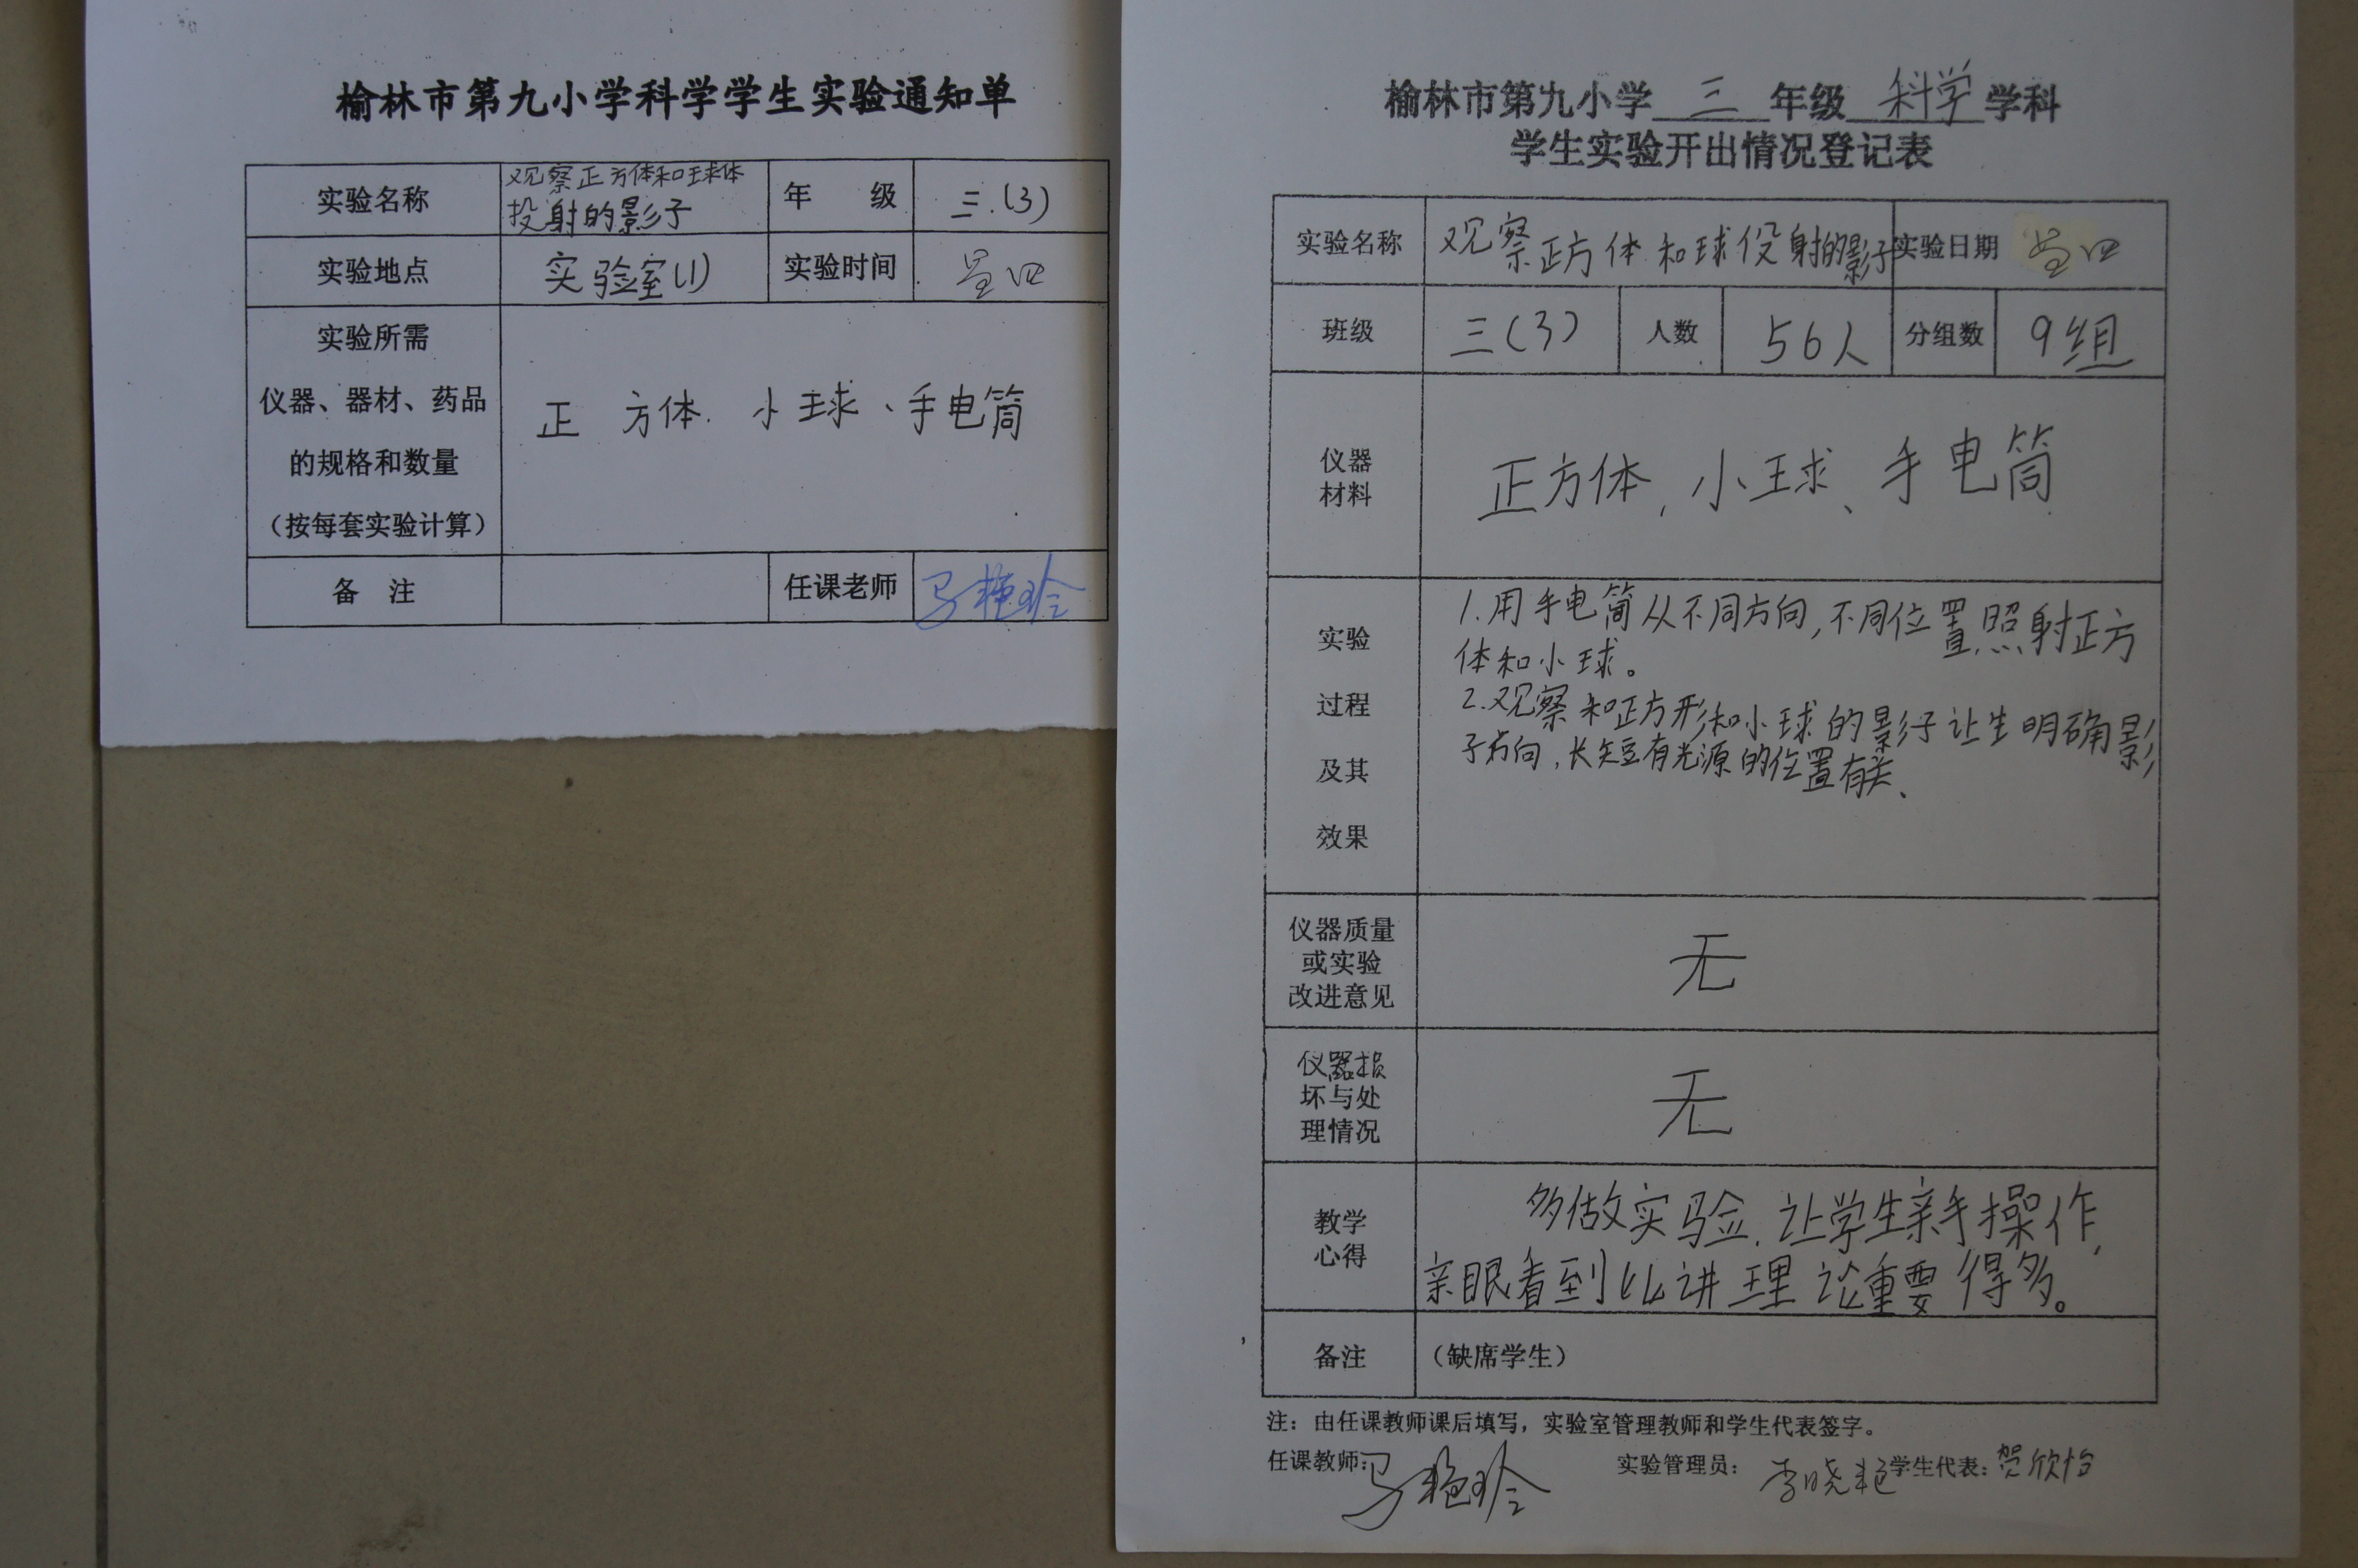 榆林市第九小学科学学生实验通知单
实验名称 观察正方体和球体
投射的影子 年 级 三.(3)
实验地点 实验室(1) 实验时间 星四
实验所需
仪器、器材、药品
的规格和数量
(按每套实验计算)
正方体.小球、手电筒
备 注 任课老师 马艳玲
榆林市第九小学 三 年级 科学 学科
学生实验开出情况登记表
实验名称 观察正方体和球投射的影子 实验日期 星四
班级 三(3) 人数 56人 分组数 9组
仪器
材料
正方体,小球、手电筒
实验
过程
及其
效果
1.用手电筒从不同方向,不同位置照射正方
体和小球。
2.观察和正方形和小球的影子让生明确影
子方向,长短有光源的位置有关、
仪器质量
或实验
改进意见
无
仪器损
坏与处
理情况
无
教学
心得
多做实验,让学生亲手操作,
亲眼看到比讲理论重要得多。
备注 (缺席学生)
注:由任课教师课后填写,实验室管理教师和学生代表签字。
任课教师:马艳玲 实验管理员:李晓艳 学生代表:贺欣怡